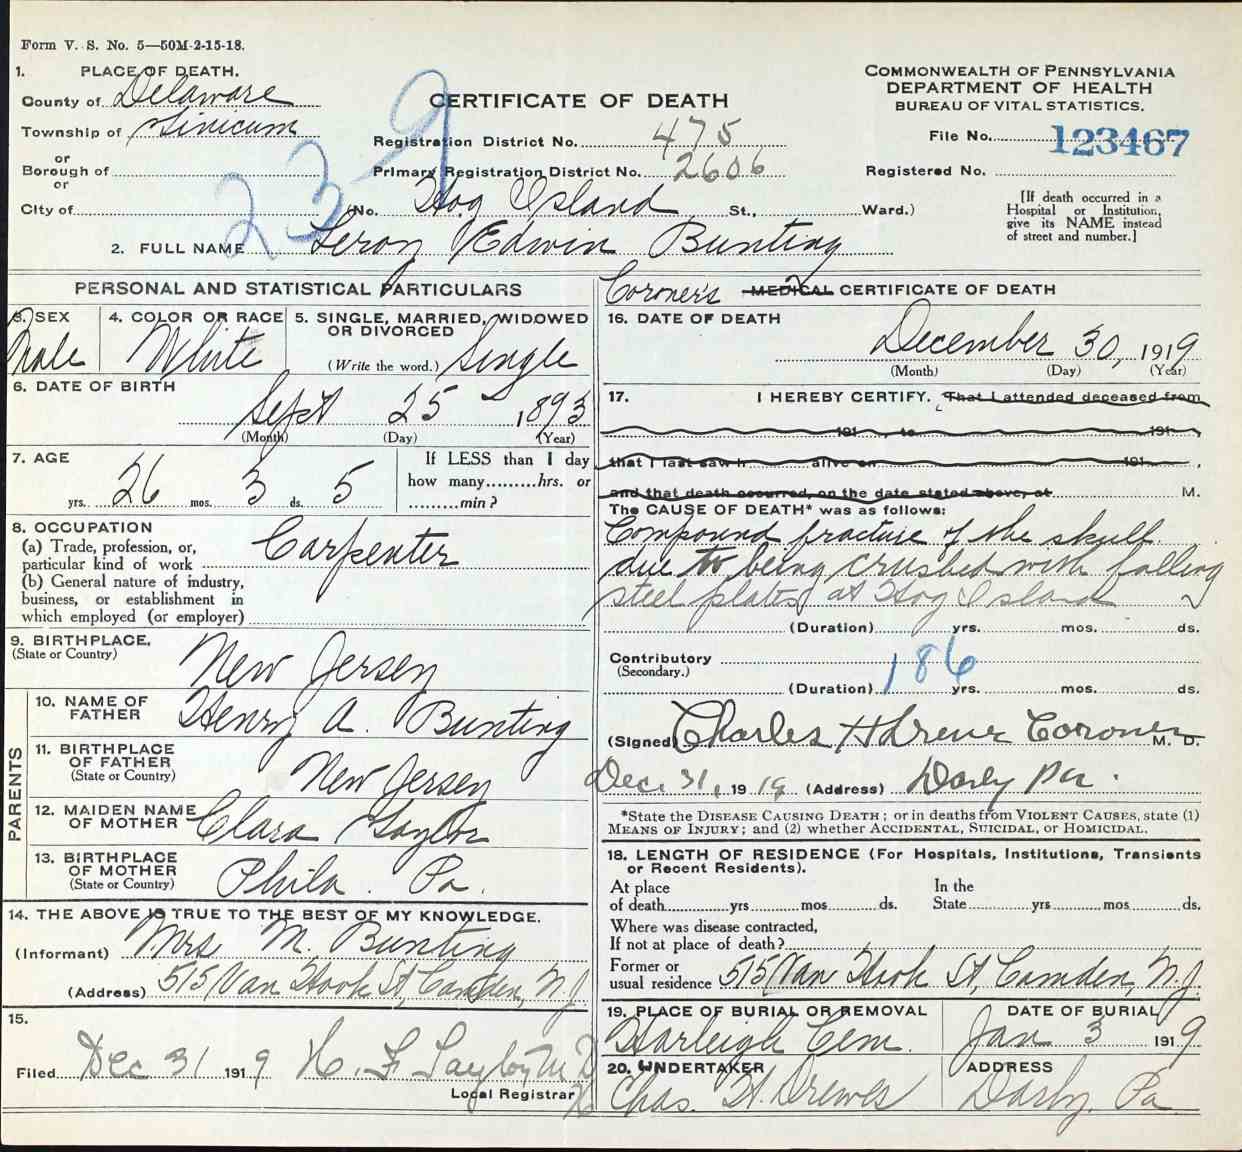 Form V. S. No. 5—50M-2-15-18.
1. PLACE OF DEATH.
County of Delaware
Township of Tinicum
or
Borough of
or
City of
CERTIFICATE OF DEATH
Registration District No. 475
Primary Registration District No. 2606
(No. Hog Island St., Ward.)
COMMONWEALTH OF PENNSYLVANIA
DEPARTMENT OF HEALTH
BUREAU OF VITAL STATISTICS.
File No. 123467
Registered No.
[If death occurred in a
Hospital or Institution,
give its NAME instead
of street and number.]
239
2. FULL NAME Leroy Edwin Bunting
PERSONAL AND STATISTICAL PARTICULARS
3. SEX
Male
4. COLOR OR RACE
White
5. SINGLE, MARRIED, WIDOWED
OR DIVORCED
(Write the word.) Single
6. DATE OF BIRTH
Sept 25, 1893
(Month) (Day) (Year)
7. AGE
26 yrs. 3 mos. 5 ds.
If LESS than 1 day
how many.........hrs. or
.........min?
8. OCCUPATION
(a) Trade, profession, or,
particular kind of work Carpenter
(b) General nature of industry,
business, or establishment in
which employed (or employer)
9. BIRTHPLACE,
(State or Country)
New Jersey
PARENTS
10. NAME OF
FATHER
Henry A. Bunting
11. BIRTHPLACE
OF FATHER
(State or Country)
New Jersey
12. MAIDEN NAME
OF MOTHER
Clara Taylor
13. BIRTHPLACE
OF MOTHER
(State or Country)
Phila. Pa.
14. THE ABOVE IS TRUE TO THE BEST OF MY KNOWLEDGE.
(Informant) Mrs M. Bunting
(Address) 515 Van Hook St, Camden, N J
15.
Filed Dec 31 1919 H. F. Taylor M D
Local Registrar
Coroner's MEDICAL CERTIFICATE OF DEATH
16. DATE OF DEATH
December 30, 1919
(Month) (Day) (Year)
17. I HEREBY CERTIFY, That I attended deceased from
191 , to 191 ,
that I last saw h alive on 191 ,
and that death occurred, on the date stated above, at M.
The CAUSE OF DEATH* was as follows:
Compound fracture of the skull
due to being crushed with falling
steel plates at Hog Island
(Duration) yrs. mos. ds.
Contributory
(Secondary.)
186
(Duration) yrs. mos. ds.
(Signed) Charles H Drewes Coroner M. D.
Dec. 31, 1919 (Address) Darby Pa.
*State the DISEASE CAUSING DEATH; or in deaths from VIOLENT CAUSES, state (1)
MEANS OF INJURY; and (2) whether ACCIDENTAL, SUICIDAL, or HOMICIDAL.
18. LENGTH OF RESIDENCE (For Hospitals, Institutions, Transients
or Recent Residents).
At place
of death yrs mos ds.
In the
State yrs mos ds.
Where was disease contracted,
If not at place of death?
Former or
usual residence 515 Van Hook St, Camden, N J
19. PLACE OF BURIAL OR REMOVAL
Harleigh Cem.
DATE OF BURIAL
Jan 3 1919
20. UNDERTAKER
Chas. H. Drewes
ADDRESS
Darby, Pa